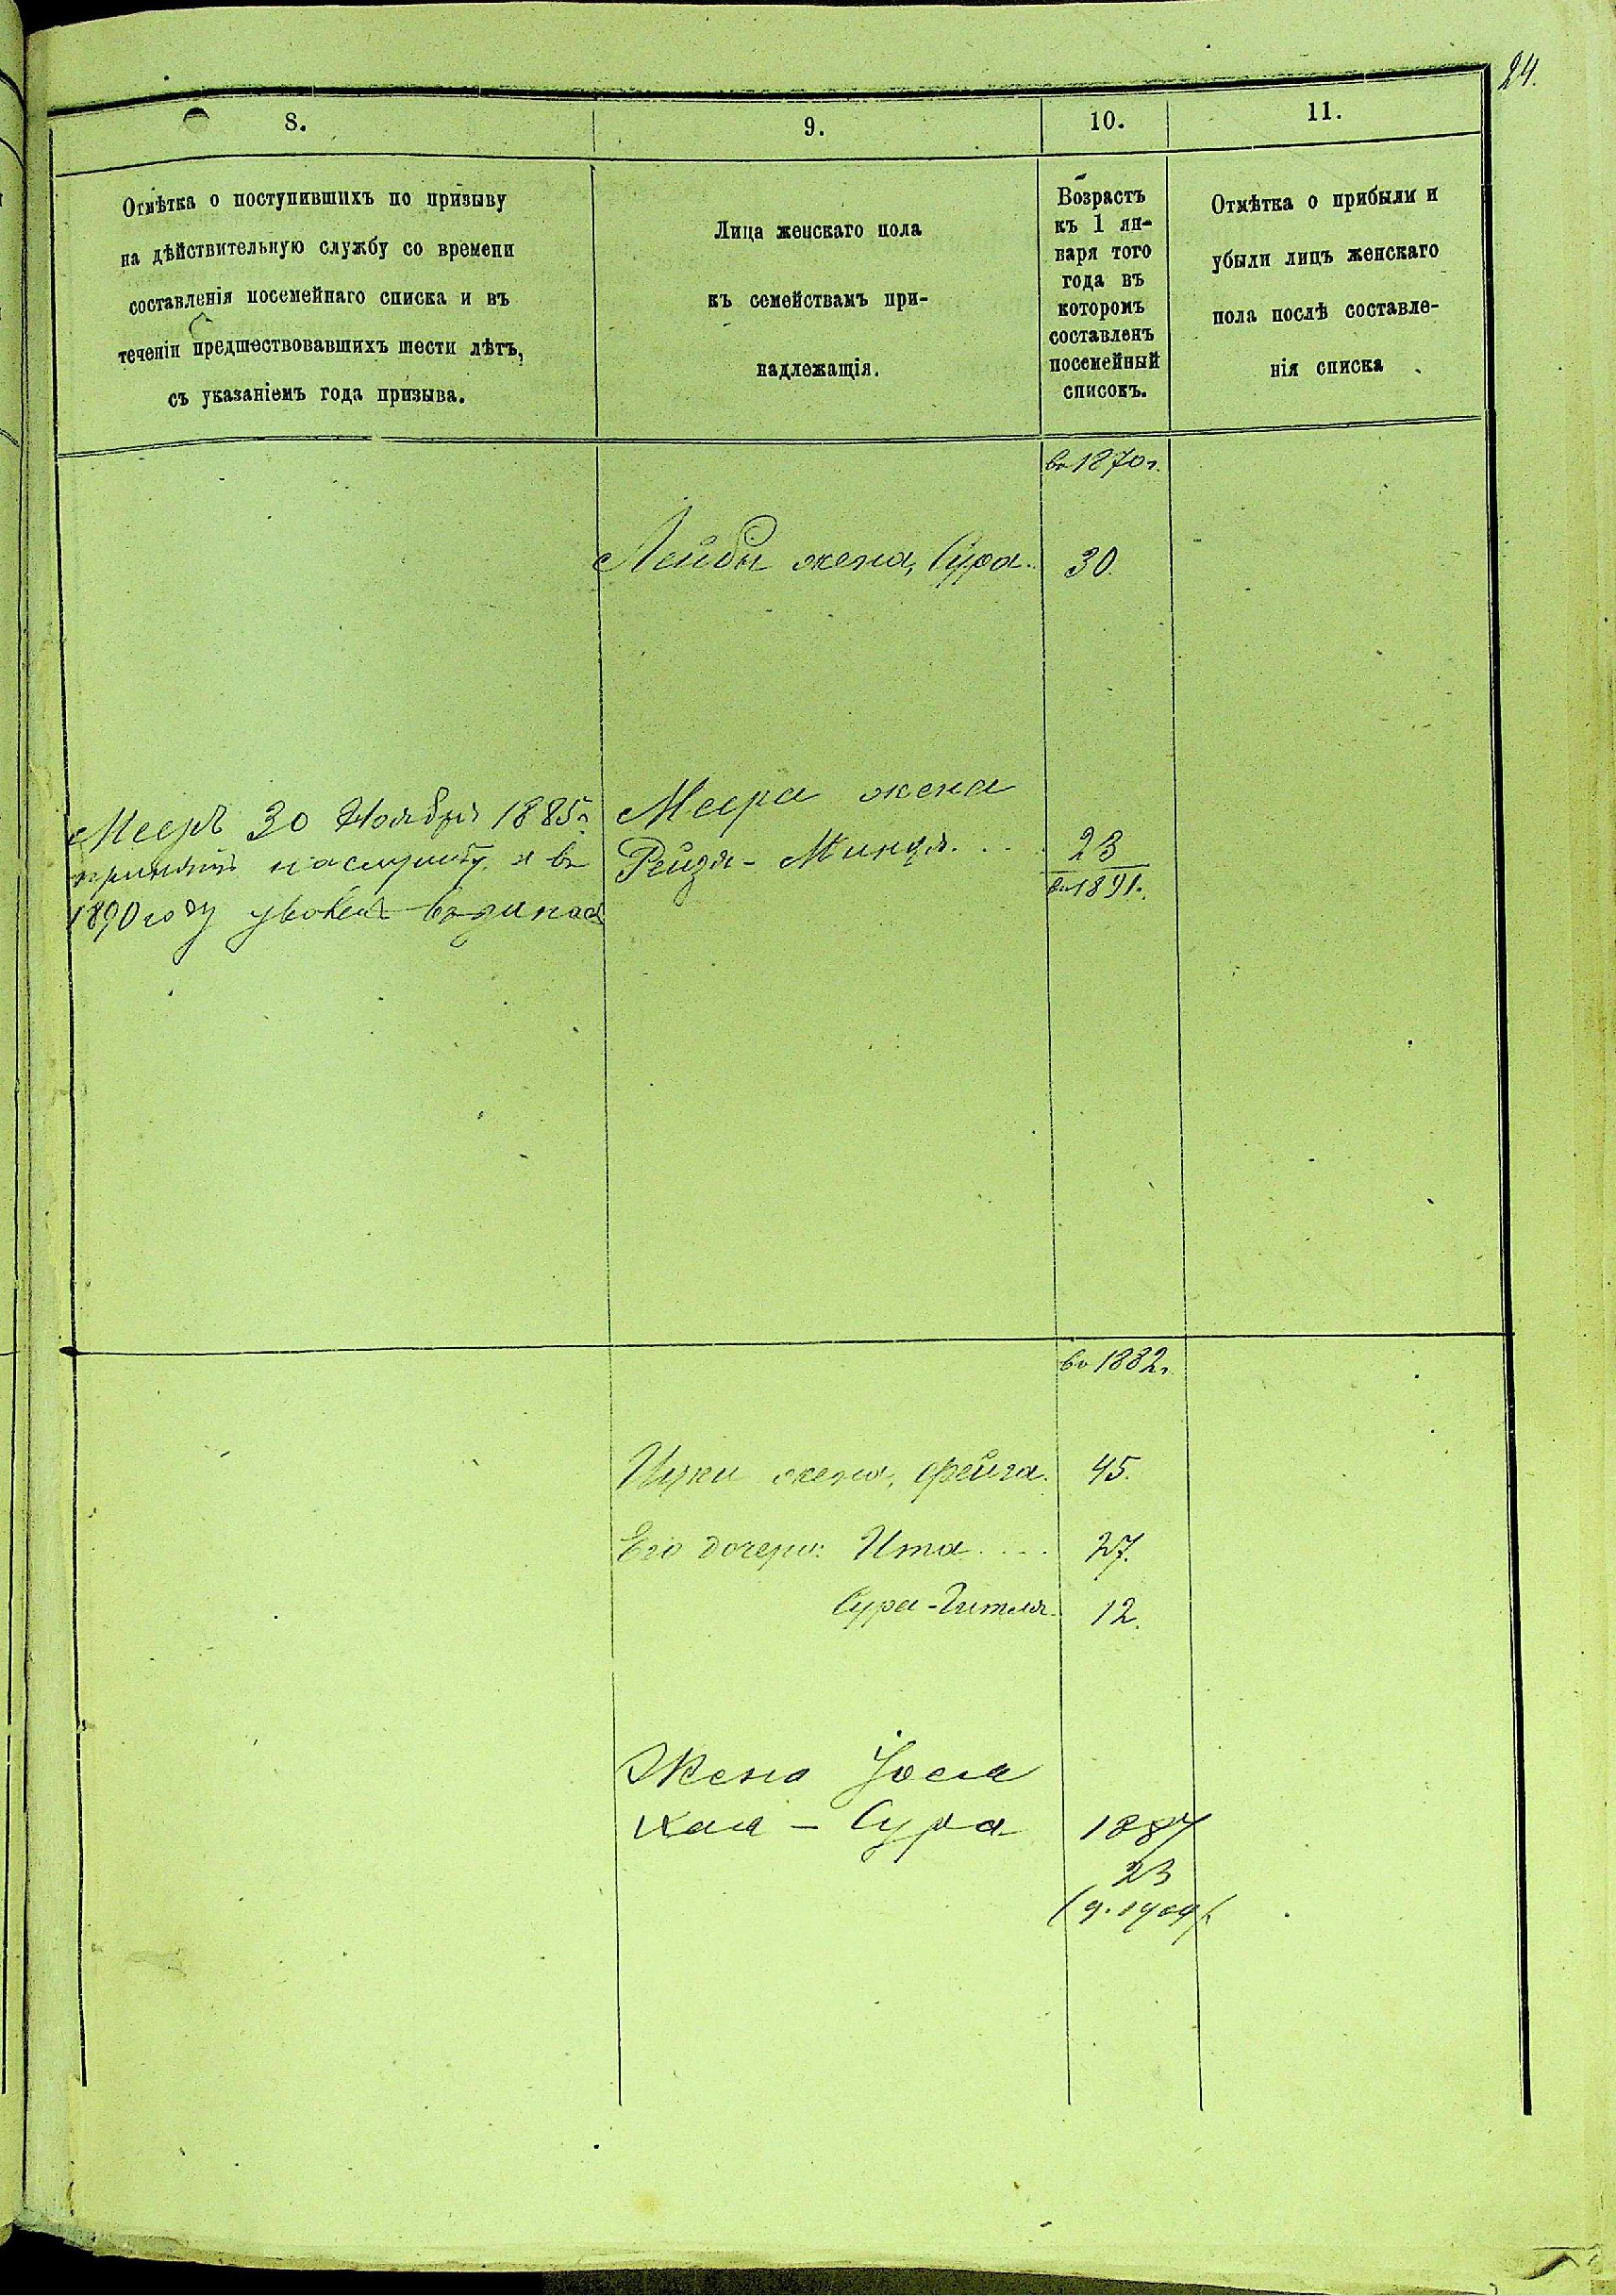 24.
8.
9.
10.
11.
Отмѣтка о поступившихъ по призыву
на дѣйствительную службу со времени
составленія посемейнаго списка и въ
теченіи предшествовавшихъ шести лѣтъ,
съ указаніемъ года призыва.
Лица женскаго пола
къ семействамъ при-
надлежащія.
Возрастъ
къ 1 ян-
варя того
года въ
которомъ
составленъ
посемейный
списокъ.
Отмѣтка о прибыли и
убыли лицъ женскаго
пола послѣ составле-
нія списка
въ 1870 г.
Лейбы жена, Сура. 30.
Мееръ 30 Ноября 1885 г.
принятъ на службу и въ
1890 году уволенъ въ запас
Меера жена
Рейзя - Миндя. . . . 23
въ 1891 г.
въ 1882 г.
Ицки жена, Фейга. 45.
Его дочери: Ита. . . . 27.
Сура-Гитля. 12.
Жена Іоселя
Хая - Сура 1887
23
(г. 1909)